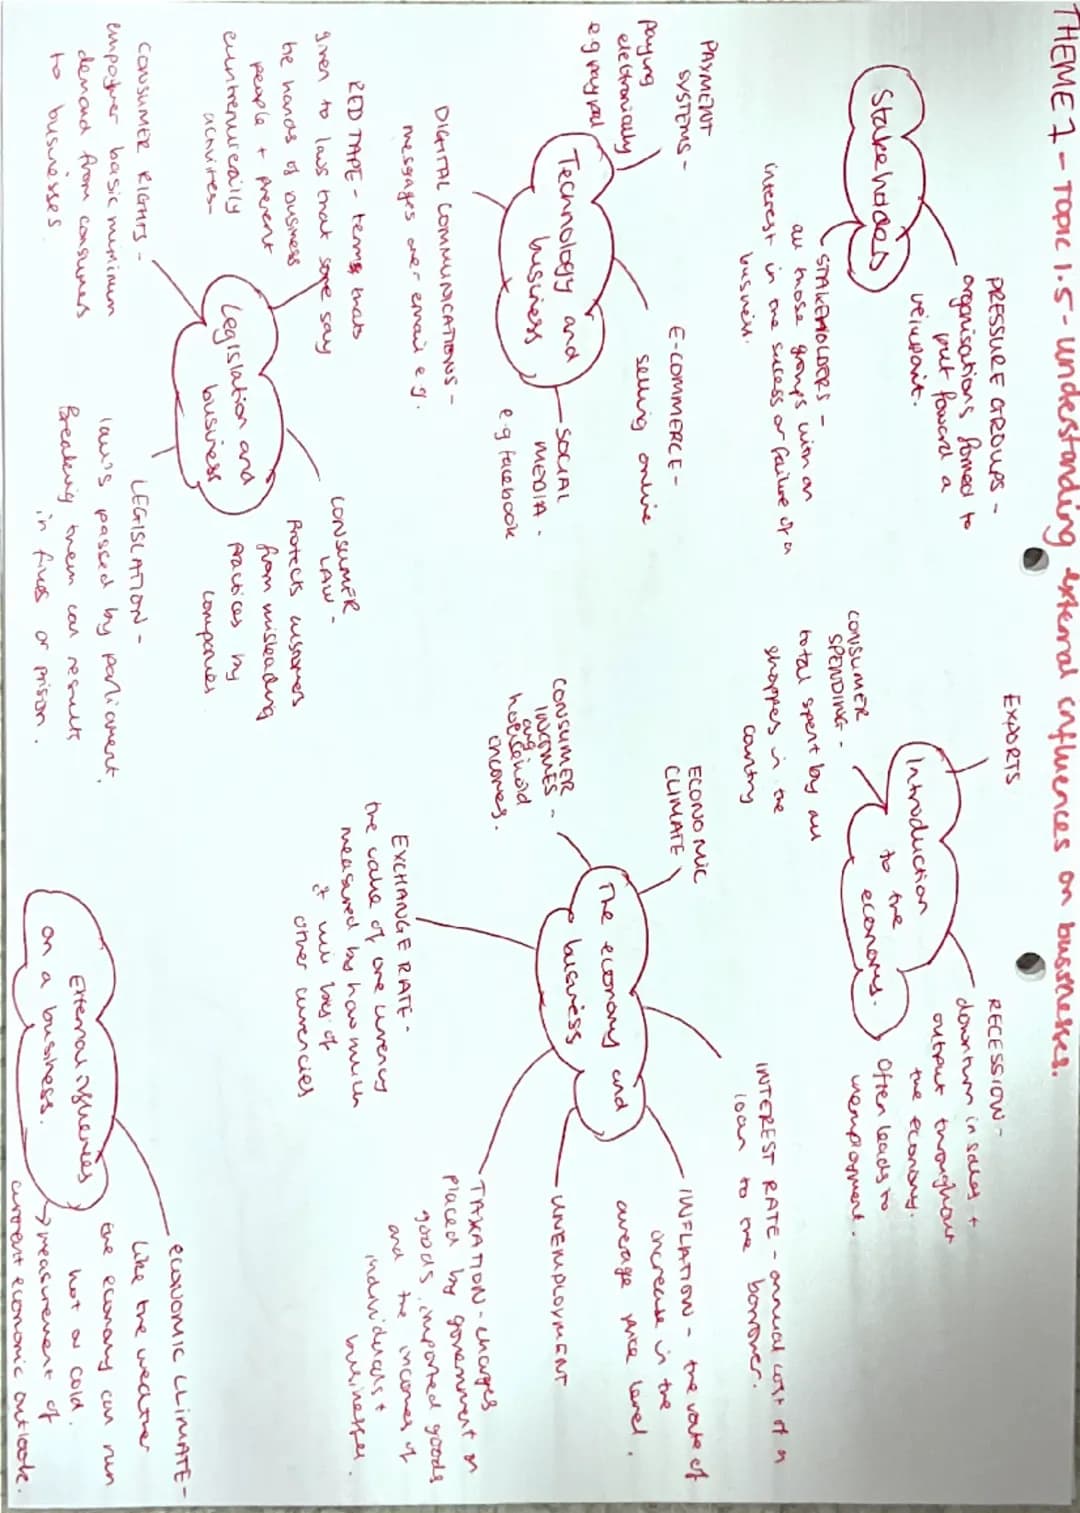 THEME 1 - TOPIC 1.5 - understanding external influences on businesses.
Stakeholders
PRESSURE GROUPS -
organisations formed to
put foward a
veiwpoint.
STAKEHOLDERS -
all those groups with an
interest in the success or failure of a
business.
EXPORTS
Introduction
to the
economy.
CONSUMER
SPENDING -
total spent by all
shoppers in the
country
RECESSION -
downturn in sales +
output throughout
the economy.
Often leads to
unemployment.
PAYMENT
SYSTEMS -
paying
electronically
e.g paypal
Technology and
business
E-COMMERCE -
selling online
SOCIAL
MEDIA -
e.g facebook
DIGITAL COMMUNICATIONS -
messages over email e.g.
ECONOMIC
CLIMATE
The economy and
business
CONSUMER
INCOMES -
avg
household
incomes.
INTEREST RATE - annual cost of a
loan to the borrower.
INFLATION - the rate of
increase in the
average price level.
UNEMPLOYMENT
TAXATION - charges
placed by government on
goods, imported goods
and the incomes of
individuals +
businesses.
EXCHANGE RATE -
the value of one currency
measured by how much
it will buy of
other currencies
RED TAPE - terms thats
given to laws that some say
tie hands of business
people + prevent
entrepreneurially
activites-
Legislation and
business
CONSUMER
LAW -
Protects customers
from misleading
practices by
companies
CONSUMER RIGHTS -
empower basic muminum
demand from consumers
to businesses
LEGISLATION -
law's passed by parliament,
Breaking them can results
in fines or prison.
External influences
on a business.
ECONOMIC CLIMATE -
like the weather
the economy can run
hot or cold.
measurement of
current economic outlook.